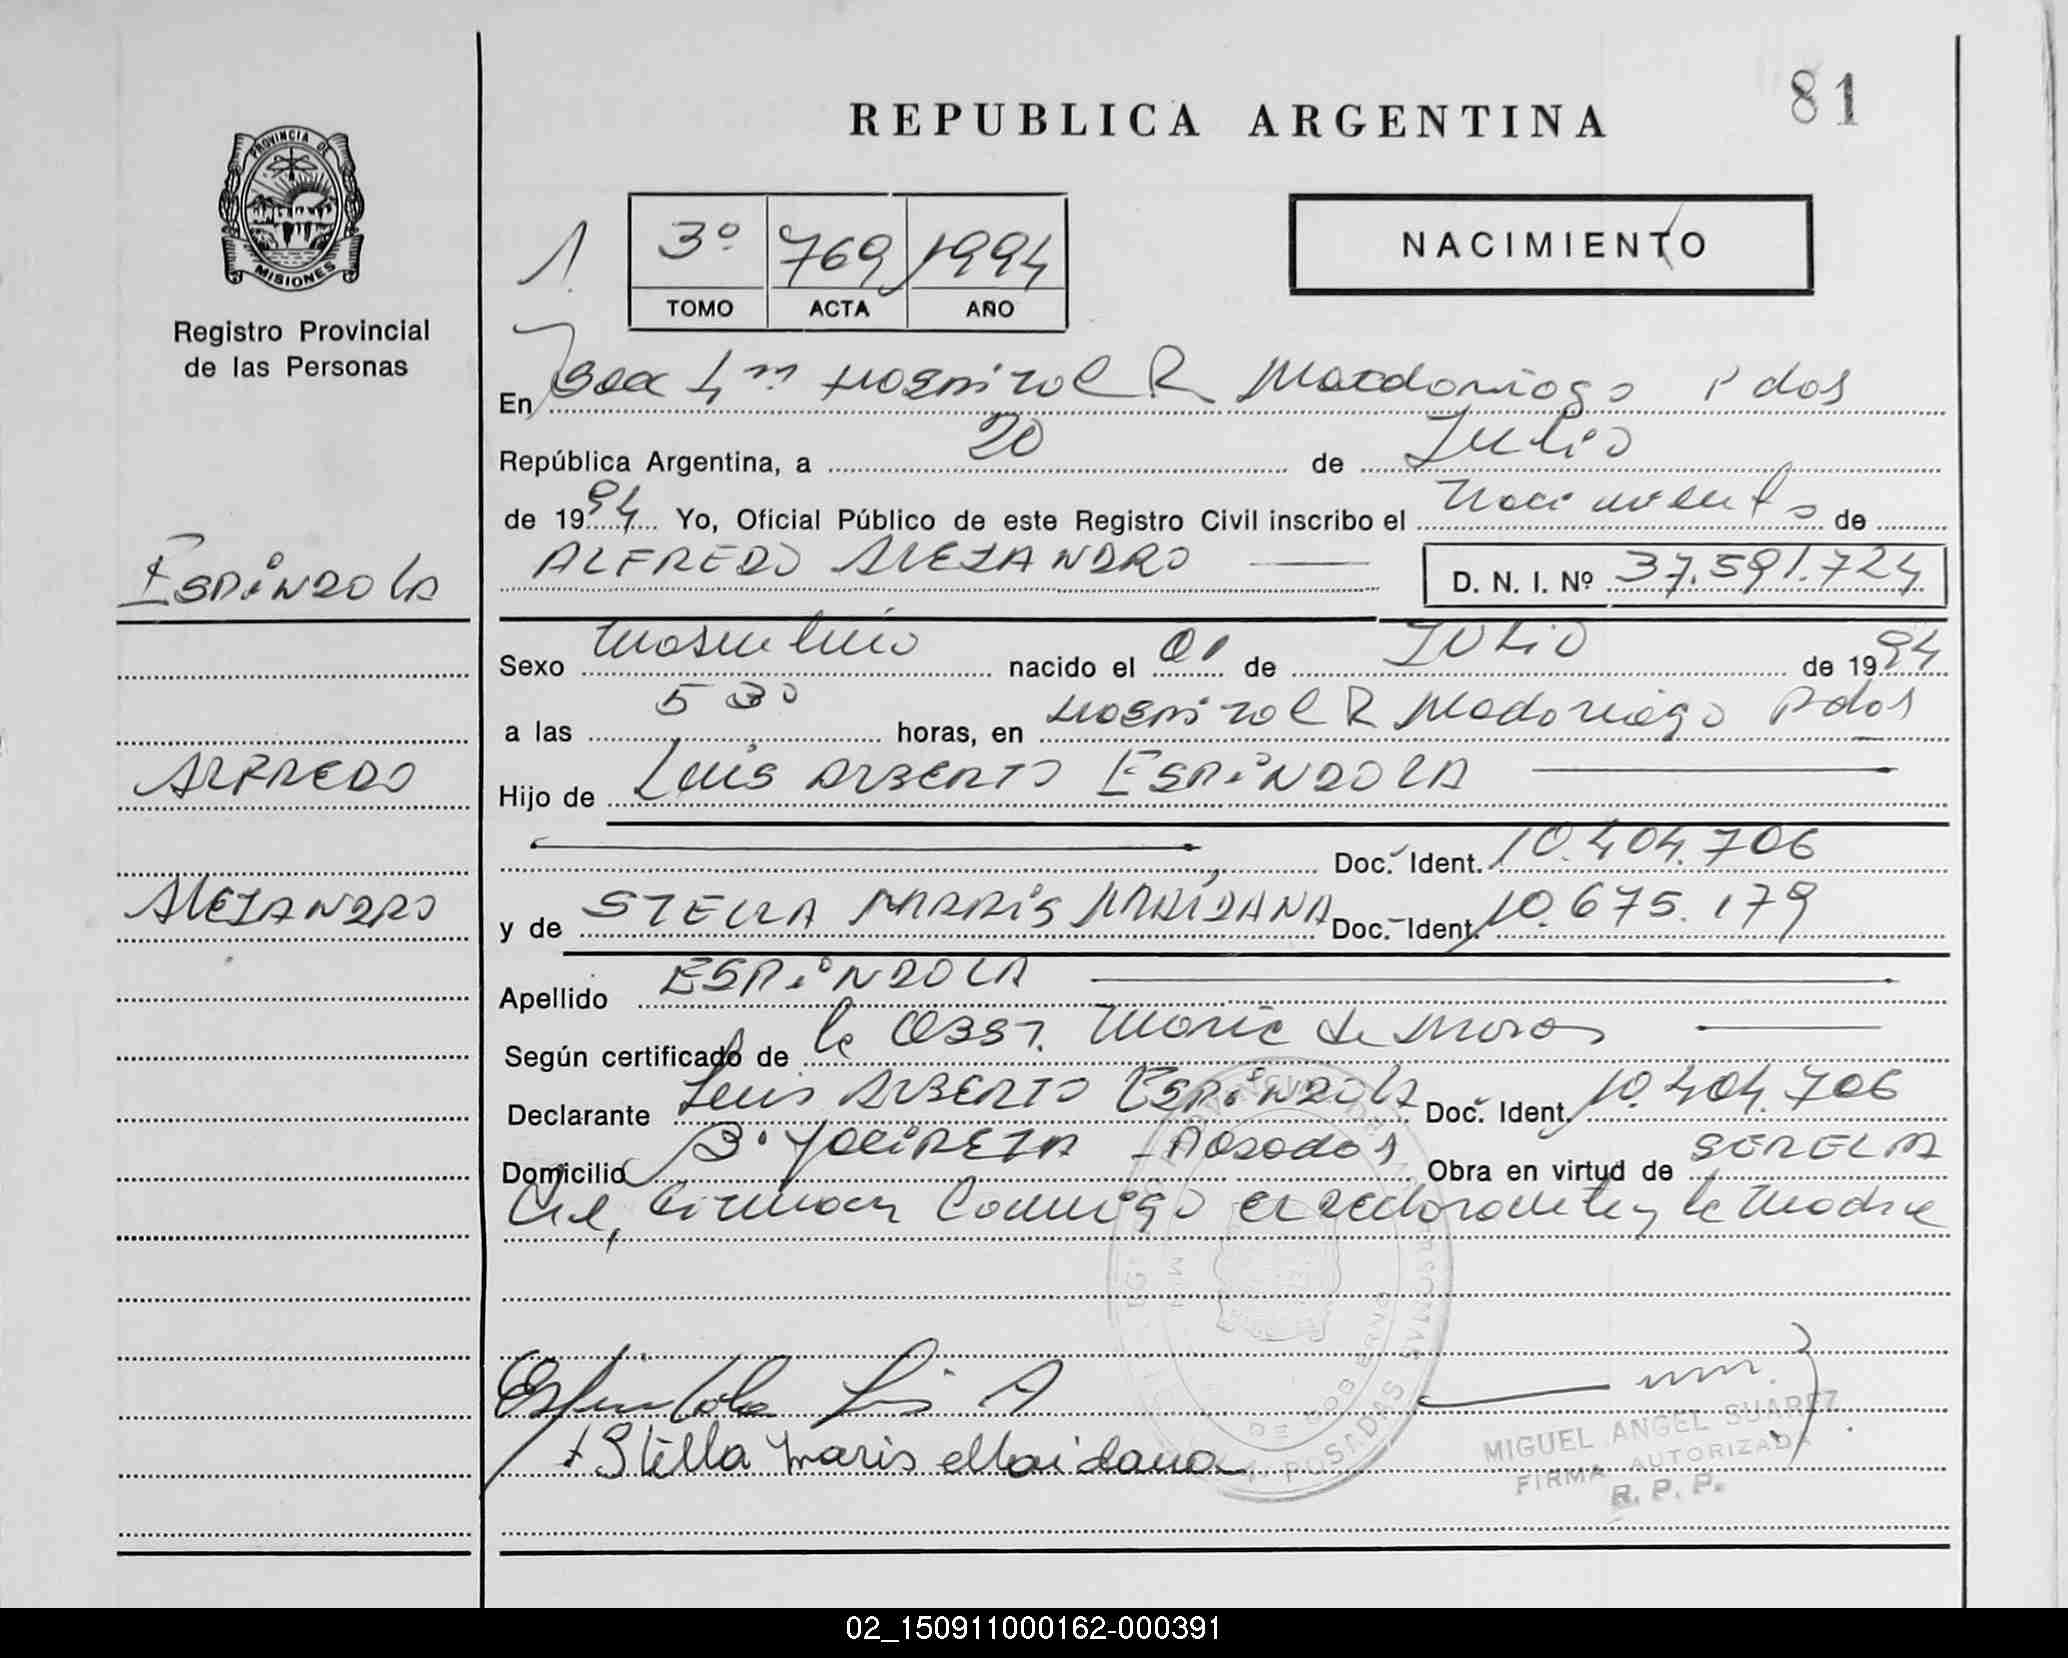 81
REPUBLICA ARGENTINA
PROVINCIA DE
MISIONES
Registro Provincial
de las Personas
1.
3º 769 1994
TOMO ACTA AÑO
NACIMIENTO
En Hospital R Madariaga Pdos
República Argentina, a 20 de Julio
de 1994 Yo, Oficial Público de este Registro Civil inscribo el Nacimiento de
ALFREDO ALEJANDRO D. N. I. Nº 37.591.724
ESPINDOLA
Sexo Masculino nacido el 01 de JULIO de 1994
a las 5 30 horas, en Hospital R Madariaga Pdos
ALFREDO
Hijo de Luis ALBERTO ESPINDOLA
Doc. Ident. 10.404.706
ALEJANDRO
y de STELLA MARIS MAIDANA Doc. Ident. 10.675.179
Apellido ESPINDOLA
Según certificado de la Obst.
Declarante Luis ALBERTO ESPINDOLA Doc. Ident. 10.404.706
Domicilio Bº YACIRETA Posadas Obra en virtud de
firman Conmigo el declarante y la Madre
Espindola Luis A
Stella Maris Maidana
MIGUEL ANGEL SUAREZ
FIRMA AUTORIZADA
R. P. P.
02_150911000162-000391